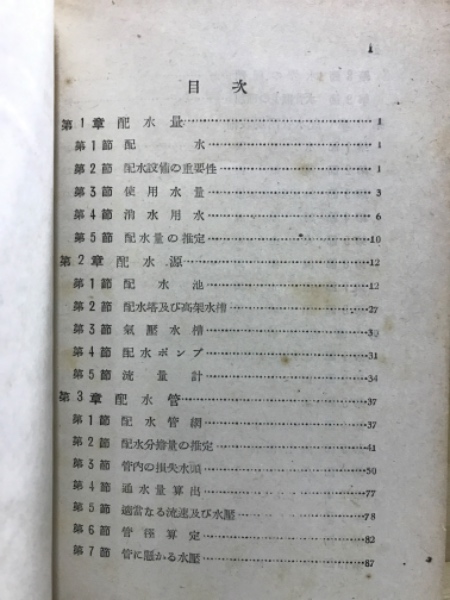 1
目次
第1章 配水量 1
第1節 配水 1
第2節 配水設備の重要性 1
第3節 使用水量 3
第4節 消火用水 6
第5節 配水量の推定 10
第2章 配水源 12
第1節 配水池 12
第2節 配水塔及び高架水槽 27
第3節 氣壓水槽 30
第4節 配水ポンプ 31
第5節 流量計 34
第3章 配水管 37
第1節 配水管網 37
第2節 配水分擔量の推定 41
第3節 管内の損失水頭 50
第4節 通水量算出 77
第5節 適當なる流速及び水壓 78
第6節 管徑算定 82
第7節 管に懸かる水壓 87